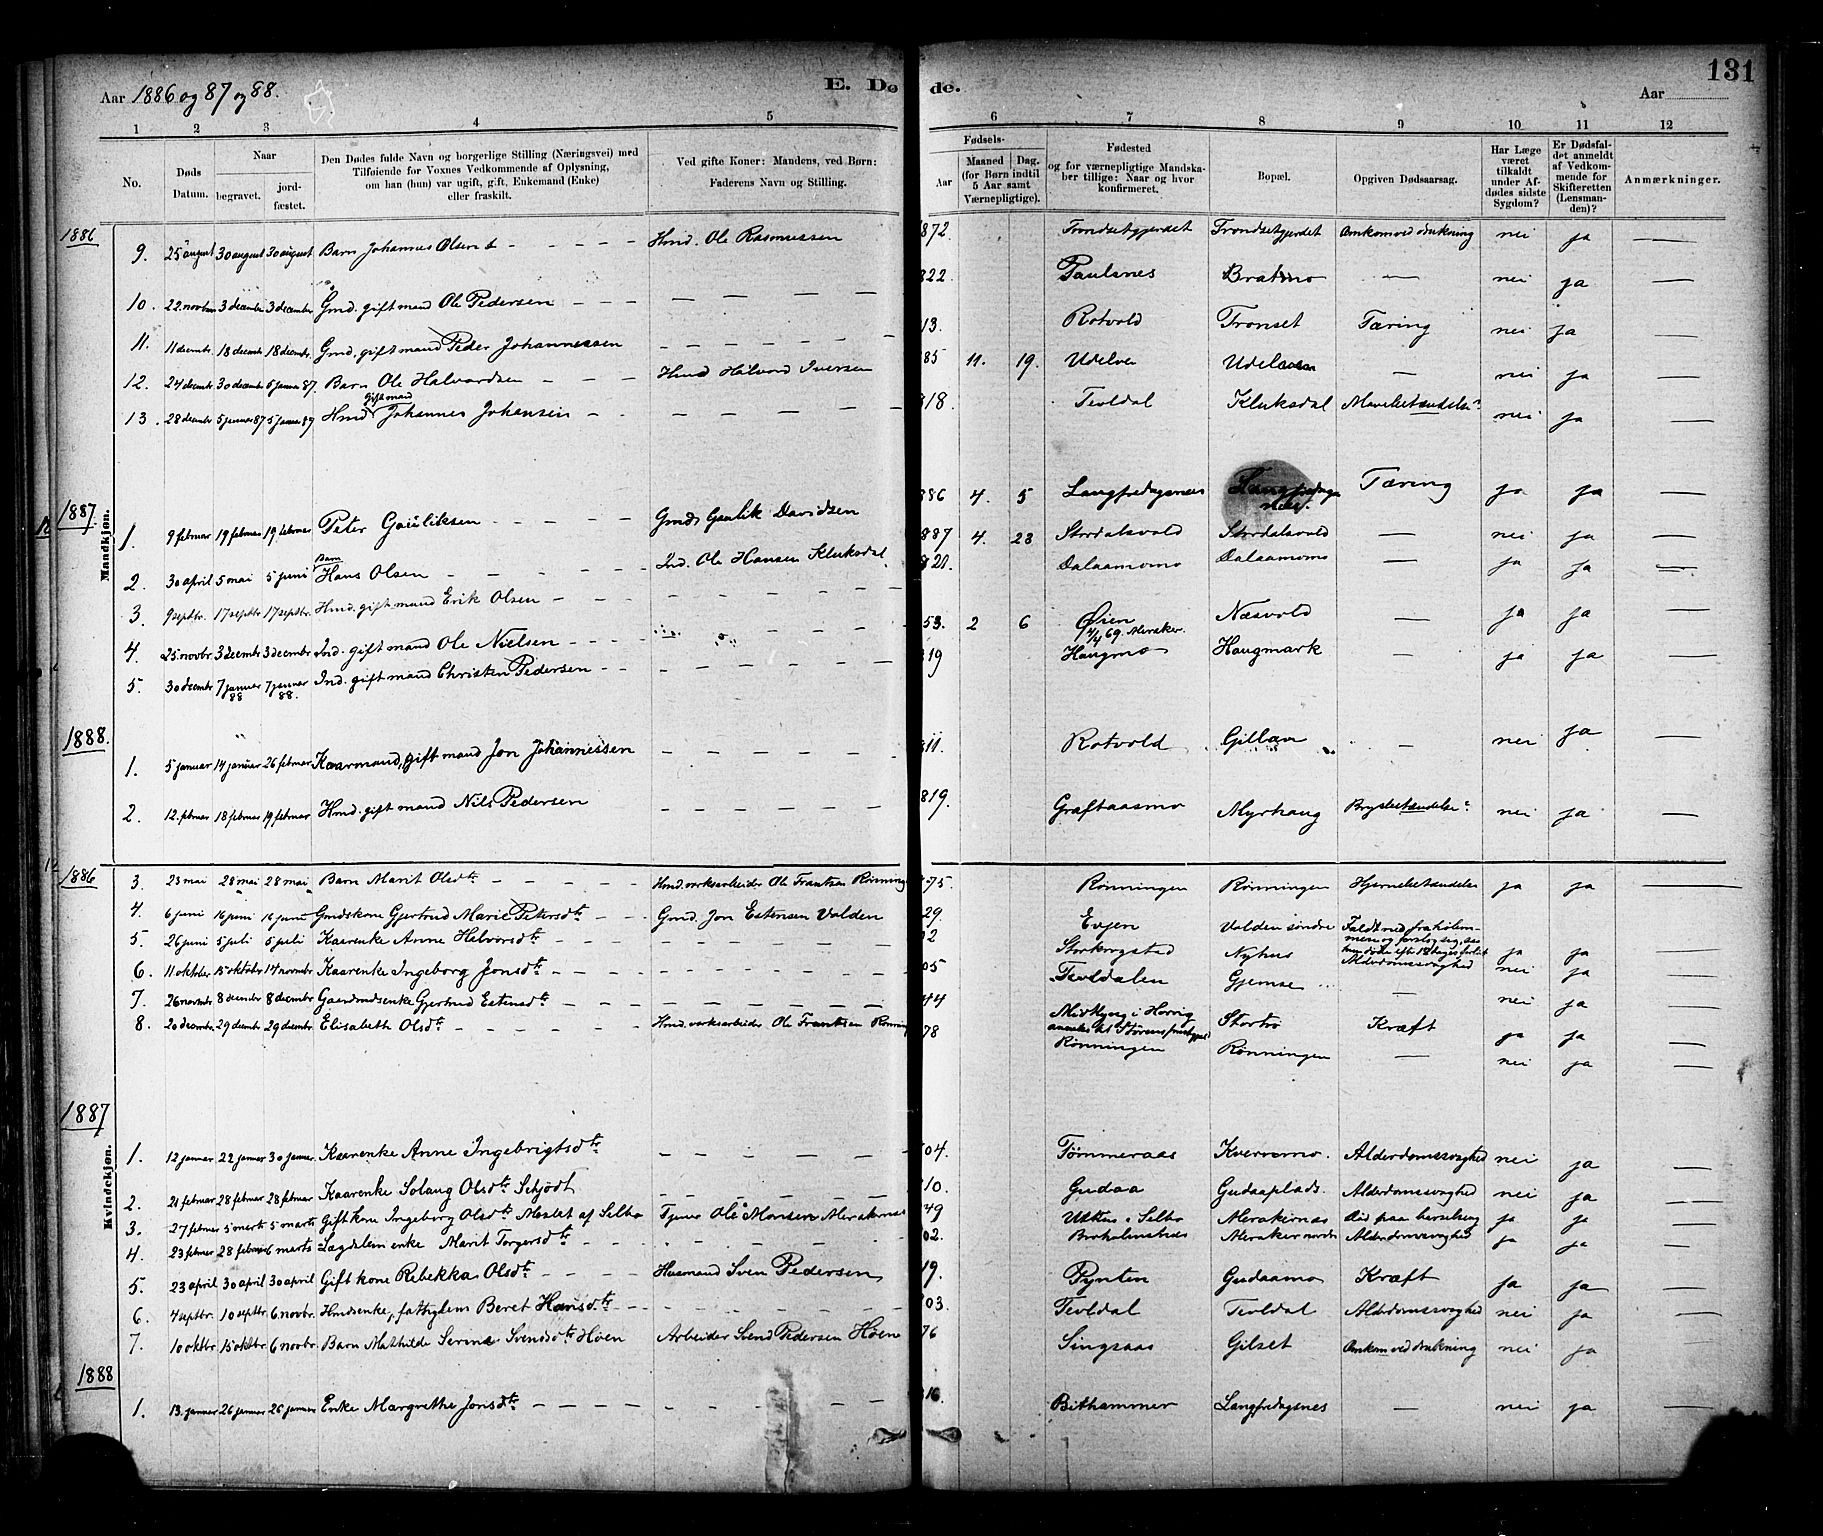 Aar 1886 og 87 og 88.
E. Dø
de.
131
Aar
1 2 3 4 5 6 7 8 9 10 11 12
No.
Døds Datum.
Naar
begravet.
jord-fæstet.
Den Dødes fulde Navn og borgerlige Stilling (Næringsvei) med Tilføiende for Voxnes Vedkommende af Oplysning, om han (hun) var ugift, gift, Enkemand (Enke) eller fraskilt.
Ved gifte Koner: Mandens, ved Børn: Faderens Navn og Stilling.
Fødsels-
Aar
Maaned (for Børn indtil 5 Aar samt Værnepligtige).
Dag.
Fødested og for værnepligtige Mandskaber tillige: Naar og hvor konfirmeret.
Bopæl.
Opgiven Dødsaarsag.
Har Læge været tilkaldt under Afdødes sidste Sygdom?
Er Dødsfaldet anmeldt af Vedkommende for Skifteretten (Lensmanden)?
Anmærkninger.
Mandkjøn.
1886
9. 25 august 30 august 30 august Barn Johannes Olsen — Hmd. Ole Rasmussen 872. Trondsetgjerdet Trondsetgjerdet Omkom ved drukning nei ja —
10. 22 novbr 3 december 3 december Gmd. gift mand Ole Pedersen — 822. Paulsnes Bratmo — nei ja —
11. 11 decembr. 18 decembr 18 decembr. Gmd. gift mand Peder Johannessen — 13. Rotvold Tronset Tæring nei ja —
12. 24 decembr 30 decembr 6 januar 87. Barn Ole Halvordsen — Hmd Halvord Iversen 85 11. 19. Udelven Udelven — nei ja —
13. 28 decembr 5 januar 87 5 januar 87 Hmd gift mand Johannes Johansen — 818. Tevldal Kluksdal Mavebetændelse nei ja —
1887.
1. 9 februar 19 februar 19 februar Peter Gauliksen — Gmd. Gaulik Davidsen 886 4. 5 Langfredagsnes Langfredagsnes. Tæring ja ja —
2. 30 april 5 mai 5 juni Barn Hans Olsen — Ind. Ole Hansen Kluksdal. 887 4. 23 Stordalsvold Stordalsvold — nei ja —
3. 9 septbr. 17 septbr 17 septbr. Hmd. gift mand Erik Olsen — 820. Dalaamomo Dalaamomo — ja ja —
4. 25. novbr. 3 decembr 3 decembr Ind. gift mand Ole Nielsen — 53. 2 6 Øien 4/4 69. Meraker. Næsvold — ja ja —
5. 30 decembr 7 januar 88 7 januar 88. Ind. gift mand Christen Pedersen — 819 Haugmo Haugmark — ja ja —
1888.
1. 5 januar 14 januar 26 februar Kaarmand, gift mand Jon Johannessen — 811. Rotvold Gillan — nei ja —
2. 12. februar 18 februar 19 februar Hmd. gift mand Nils Pedersen — 819. Græftaasmo Myrhaug Brystbetændelse nei ja —
Kvindekjøn.
1886
3. 23 mai 28 mai 28 mai Barn Marit Olsdtr — Hmd. verksarbeider Ole Frantsen Rønning 75. Rønningen Rønningen Hjernebetændelse ja ja —
4. 6 juni 16 juni 16 juni Gmdskone Gjertrud Marie Petersdtr — Gmd. Jon Estensen Valden 29. Evjen Valden søndre
5. 26 juni 5 juli 5 juli Kaarenke Anne Halvorsdtr — 02 Storkrogstad Nyhus ja ja —
6. 11 oktober 15 oktobr 14 novembr Kaarenke Ingeborg Jonsdtr — 05 Tevldalen Gjemse Alderdomssvaghed nei ja —
7. 26 novembr 8 decembr 8 decembr Gaardmdsenke Gjertrud Estensdtr — 44 Stortro Kræft nei ja —
8. 20 decembr. 29 decembr 29 decembr Elisabeth Olsdtr — Hmd. verksarbeider Ole Frantsen Rønning 78 Rønningen Rønningen — nei ja —
1887
1. 12 januar 22 januar 30 januar. Kaarenke Anne Ingebrigtsdtr — 04. Tømmeraas Kvernmo. Alderdomssvaghed nei ja —
2. 21 februar 28 februar 28 februar Kaarenke Solaug Olsdtr Schjødt — 810. Gudaa Gudaaplads. Alderdomssvaghed nei ja —
3. 27 februar 5 marts 5 marts Gift kone Ingeborg Olsdtr Moslet af Selbo Ole Monsen Merakernæs 49 Selbo Merakernæs Død paa barselseng ja ja —
4. 23 februar 28 februar 6 marts Lægdelem enke Marit Torgersdtr — 02. Meraker nordre Alderdomssvaghed ja ja —
5. 23 april 30 april 30 april Gift kone Rebekka Olsdtr — Husmand Sven Pedersen 19. Pynten Gudaamo Kræft ja ja —
6. 4 septbr. 10 septbr 6 novbr. Hmdsenke, fattiglem Beret Hansdtr — 03. Tevldal Tevldal Alderdomssvaghed nei ja —
7. 10 oktbr 15 oktbr 6 novbr. Barn Mathilde Serine Svendsdtr Høen Arbeider Svend Pedersen Høen 76 Singsaas Gilset Omkom ved drukning nei ja —
1888
1. 13. januar 26 januar 26 januar Enke Margrethe Jonsdtr — 816. Bithammer Langfredagsnes — nei ja —